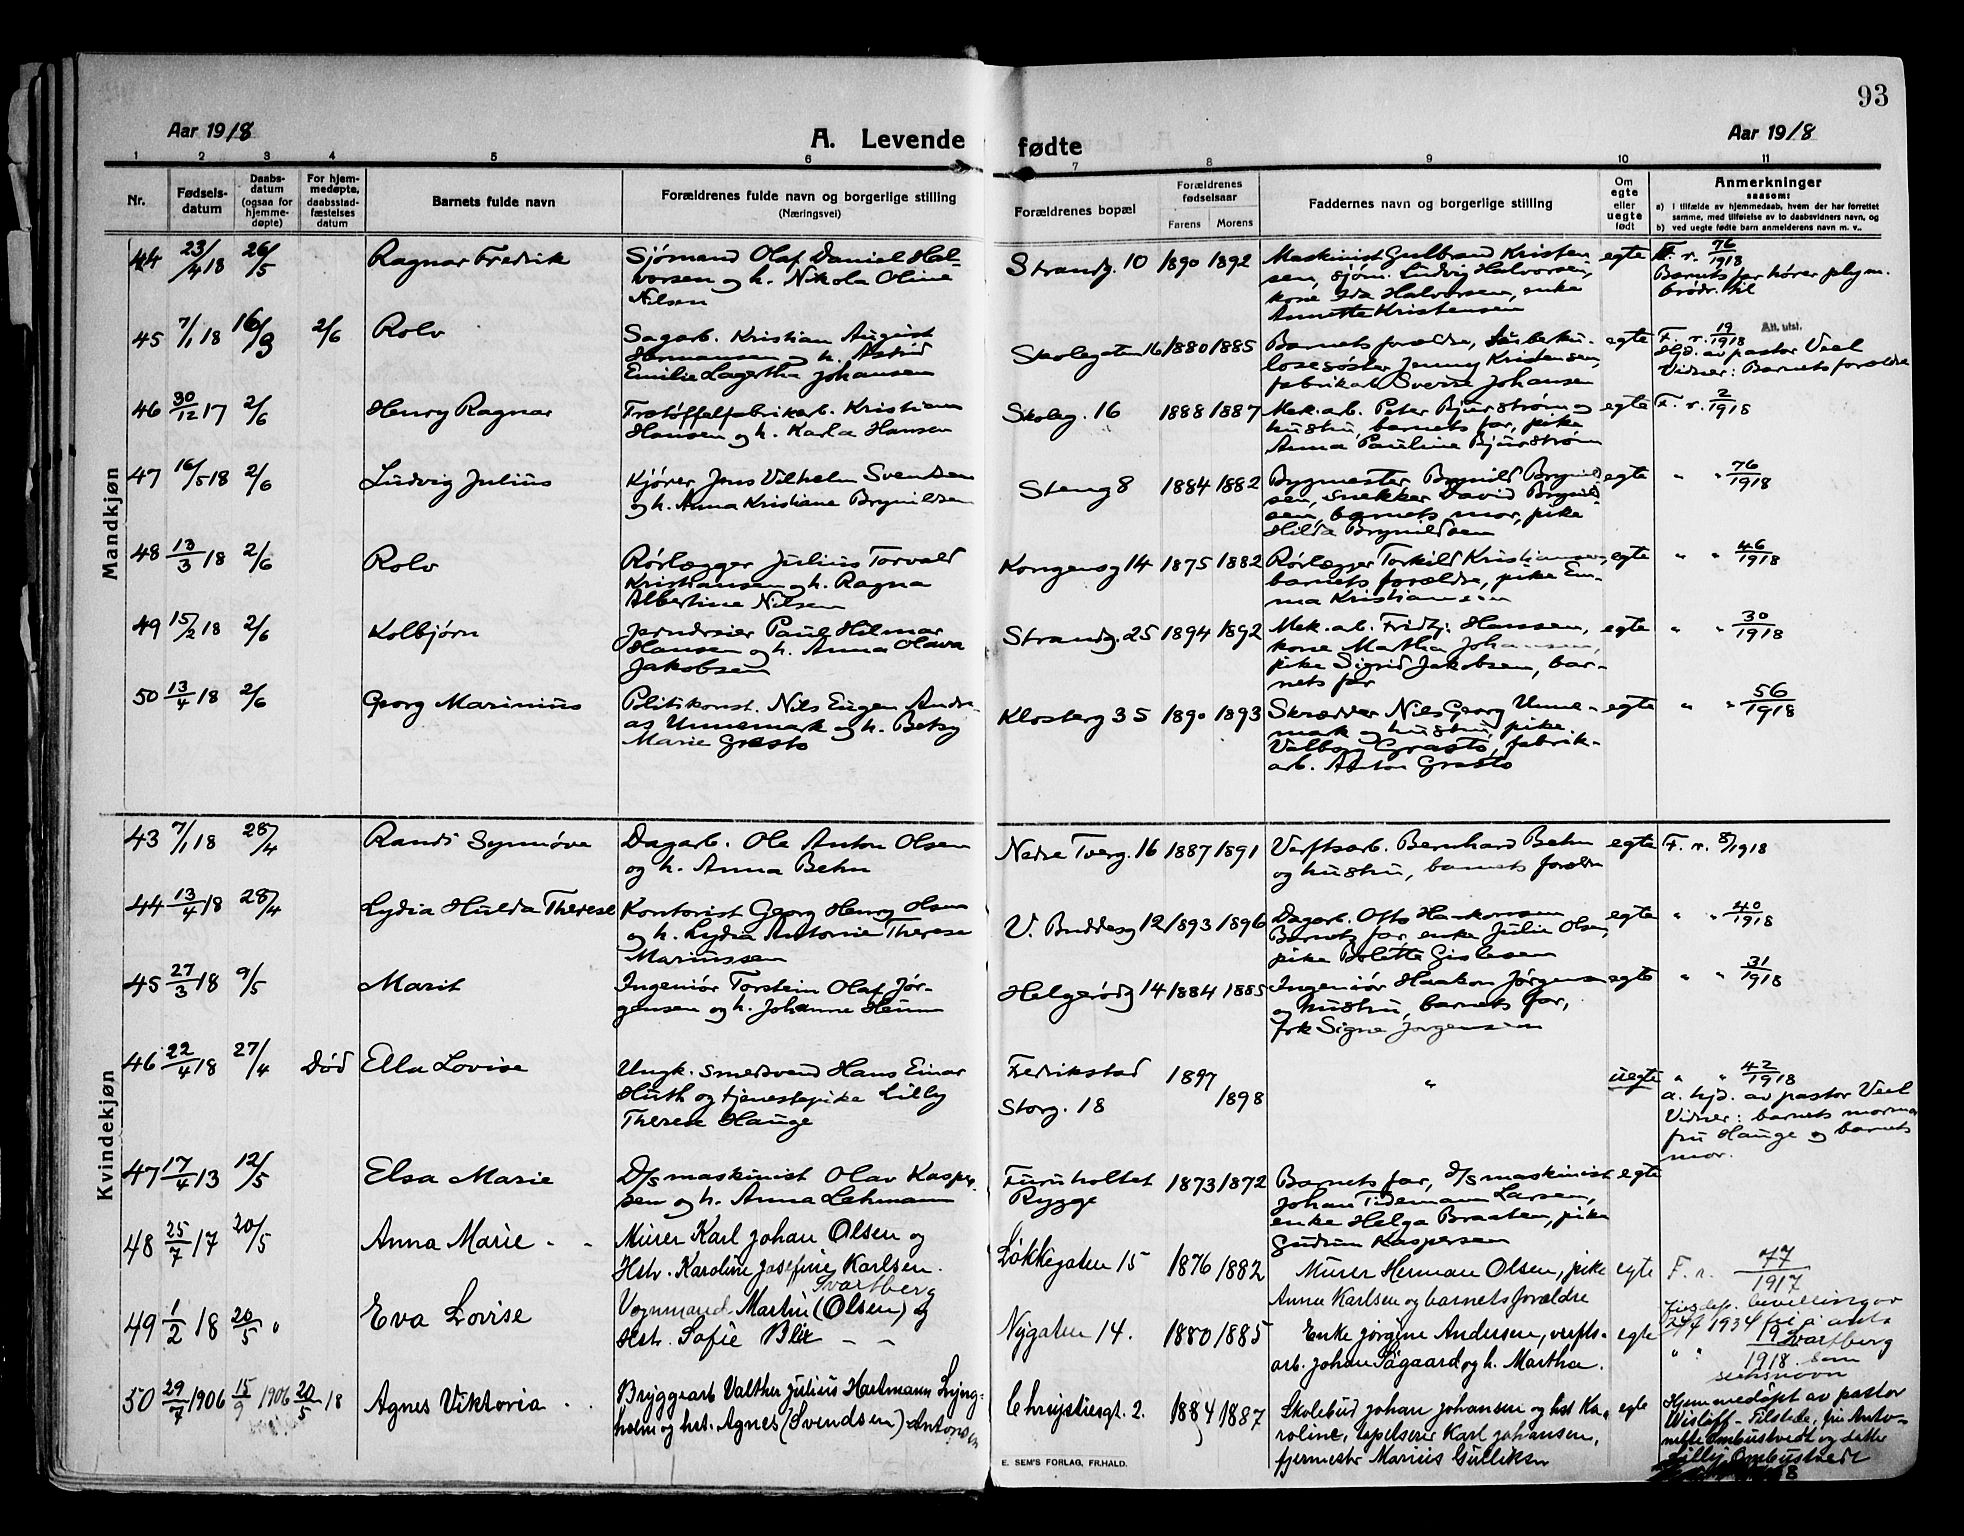 93
Aar 1918
A. Levende
fødte
Aar 1918
1 2 3 4 5 6 7 8 9 10 11
Nr.
Fødsels-
datum
Daabs-
datum
(ogsaa for
hjemme-
døpte)
For hjem-
medøpte,
daabsstad-
fæstelses
datum
Barnets fulde navn
Forældrenes fulde navn og borgerlige stilling
(Næringsvei)
Forældrenes bopæl
Forældrenes
fødselsaar
Farens Morens
Faddernes navn og borgerlige stilling
Om
egte
eller
uegte
født
Anmerkninger
saasom:
a) I tilfælde av hjemmedaab, hvem der har forrettet
samme, med tilføielse av to daabsvidners navn, og
b) ved uegte fødte barn anmelderens navn m. v..
Mandkjøn
44 23/4 18 26/5 Ragnar Fredrik
Sjømand Olaf Daniel Hal-
vorsen og h. Nikola Oline
Nilsen
Strandg. 10 1890 1892
Maskinist Gulbrand Kristen-
sen, sjøm. Ludvig Halvorsen,
kone Ida Halvorsen, enke
Annette Kristensen
egte
F. r. 76/1918
Barnets far hører plym.
brødr. til
45 7/1 18 16/3 2/6 Rolv
Sagarb. Kristian August
Hermansen og h. Astrid
Emilie Lagertha Johansen
Skolegaten 16 1880 1885
Barnets forældre, tuberku-
losesøster Jenny Kristensen,
fabrikat Sverre Johansen
egte
F. r. 19/1918 Att. utst.
Hjd. av pastor Veel
Vidner: Barnets forældre
46 30/12 17 2/6 Henry Ragnar
Trætøffelfabrikarb. Kristian
Hansen og h. Karla Hansen
Skoleg. 16 1888 1887
Mek. arb. Peter Bjurstrøm og
hustru, barnets far, pike
Anna Pauline Bjurstrøm
egte
F. r. 2/1918
47 16/5 18 2/6 Ludvig Julius
Kjører Jens Vilhelm Svendsen
og h. Anna Kristiane Brynildsen
Steng 8 1884 1882
Bygmester Brynild Brynild-
sen, snekker David Brynild-
sen, barnets mor, pike
Hilda Brynildsen
egte
" " 76/1918
48 13/3 18 2/6 Rolv
Rørlægger Julius Torvald
Kristiansen og h. Ragna
Albertine Nilsen
Kongensg 14 1875 1882
Rørlægger Torkild Kristiansen,
barnets forældre, pike Em-
ma Kristiansen
egte
" " 46/1918
49 15/2 18 2/6 Kolbjørn
Jerndreier Paul Hilmar
Hansen og h. Anna Olava
Jakobsen
Strandg. 25 1894 1892
Mek. arb. Fridtj. Hansen,
kone Martha Johansen,
pike Sigrid Jakobsen, bar-
nets far
egte
" " 30/1918
50 13/4 18 2/6 Georg Marinius
Politikonst. Nils Eugen Andre-
as Unnemark og h. Betsy
Marie Græsto
Klosterg 35 1890 1893
Skrædder Nils Georg Unne-
mark og hustru, pike
Valborg Græsto, fabrik-
arb. Anton Græsto
egte
" " 56/1918
Kvindekjøn
43 7/1 18 28/4 Randi Synnøve
Dagarb. Ole Anton Olsen
og h. Anna Behn
Nedre Tverg. 16 1887 1891
Verftsarb. Bernhard Behn
og hustru, barnets forældre
egte
F. r. 8/1918
44 13/4 18 28/4 Lydia Hulda Therese
Kontorist Georg Henry Olsen
og h. Lydia Antonie Therese
Mariussen
V. Buddesg 12 1893 1896
Dagarb. Haakonsen
Barnets far, enke Julie Olsen,
pike Bolette Gislesen
egte
" " 40/1918
45 27/3 18 9/5 Marit
Ingeniør Torstein Olaf Jør-
gensen og h. Johanne Heum
Helgerødg 14 1884 1885
Ingeniør Haakon Jørgensen
og hustru, barnets far,
frk Signe Jørgensen
egte
" " 31/1918
46 22/4 18 27/4 Død Ella Lovise
Ungk. smedsvend Hans Einar
Huth og tjenestepike Lilly
Therese Hauge
Fredrikstad 1897
Storg. 18 1898
"
uegte
" " 42/1918
a. hjd. av pastor Veel
Vidner: barnets mormor
fru Hauge og barnets
mor.
47 17/4 13 12/5 Elsa Marie
D/s maskinist Olav Kasper-
sen og h. Anna Lehmann
Furuholtet
Rygge
1873 1872
Barnets far, d/s maskinist
Johan Tidemann Larsen,
enke Helga Braaten, pike
Gudrun Kaspersen
egte
48 25/7 17 20/5 Anna Marie
Murer Karl Johan Olsen og
Hstr. Karoline Josefine Karlsen.
Løkkegaten 15 1876 1882
Murer Herman Olsen, pike
Anna Karlsen og barnets forældre
egte
F. r. 77/1917
49 1/2 18 20/5 Eva Lovise
Svartberg
Vognmand Martin (Olsen) og
Hstr. Sofie Blix
Nygaten 14. 1880 1885
Enke Jørgine Andersen, verfts-
arb. Johan Sagaard og h. Martha.
egte
bevilling av
1934 for å anta
" " 19/1918 Svartberg
som
slektsnavn
50 29/7 1906 15/9 1906 20/5 18 Agnes Viktoria
Bryggearb Valther Julius Hartmann Lyng-
holm og hst. Agnes (Svendsen) Antonsen
Christiesgt. 2. 1884 1887
Skolebud Johan Johansen og hst Ka-
roline, tapetserer Karl Johansen,
fjermester Marius Gulliksen
egte
Hjemmedøpt av pastor
Wisløff - Tilstede, fru Anto-
nette Ombustvedt og datter
Lilly Ombustvedt
E. SEM'S FORLAG, FR.HALD.